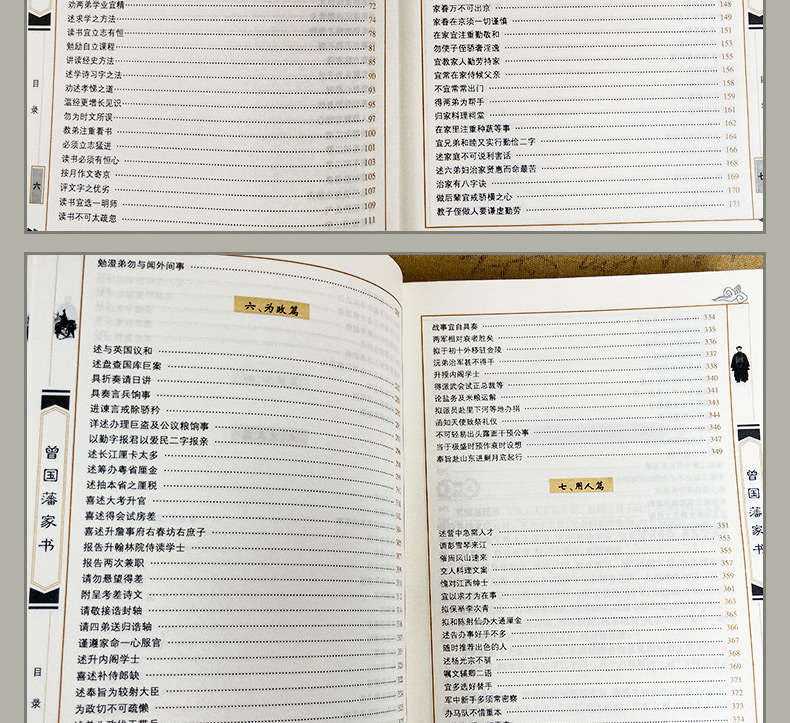 劝两弟学业宜精 72
述求学之方法 74
读书宜立志有恒 78
勉励自立课程 81
讲读经史方法 85
述学诗习字之法 90
劝述孝悌之道 93
温经更增长见识 95
勿为时文所误 97
教弟注重看书 100
必须立志猛进 101
读书必须有恒心 103
按月作文寄京 105
评文字之优劣 107
读书宜选一明师 109
读书不可太疏忽 111
目录
六
家眷万不可出京 148
家眷在京须一切谨慎 149
在家宜注重勤敬和 151
勿使子侄骄奢淫逸 153
宜教家人勤劳持家 155
宜常在家侍候父亲 156
不宜常常出门 158
得两弟为帮手 159
归家料理祠堂 161
在家里注重种蔬等事 162
宜兄弟和睦又实行勤俭二字 164
述家庭不可说利害话 166
述六弟妇治家贤惠而命最苦 168
治家有八字诀 169
做后辈宜戒骄横之心 170
教子侄做人要谦虚勤劳 171
勉澄弟勿与闻外间事
六、为政篇
述与英国议和
述盘查国库巨案
具折奏请日讲
具奏言兵饷事
进谏言戒除骄矜
详述办理巨盗及公议粮饷事
以勤字报君以爱民二字报亲
述长江厘卡太多
述筹办粤省厘金
述抽本省之厘税
喜述大考升官
喜述得会试房差
喜述升詹事府右春坊右庶子
报告升翰林院侍读学士
报告两次兼职
请勿悬望得差
附呈考差诗文
请敬接诰封轴
请四弟送归诰轴
谨遵家命一心服官
述升内阁学士
喜述补侍郎缺
述奉旨为较射大臣
为政切不可疏懒
曾国藩家书
目录
战事宜自具奏 334
两军相对哀者胜矣 335
拟于初十外移驻金陵 336
沅弟治军甚不得手 337
升授内阁学士 338
得派武会试正总裁等 340
论盐务及米粮运解 341
拟派员赴里下河等地办捐 343
函知天使致祭礼仪 344
不可轻易出头露面干预公事 346
当于极盛时预作衰时设想 347
奉旨赴山东进剿月底起行 349
七、用人篇
述营中急需人才 351
调彭雪琴来江 353
催周凤山速来 355
交人料理文案 357
愧对江西绅士 359
宜以求才为在事 361
拟保举李次青 363
拟和陈射仙办大通厘金 365
述告办事好手不多 366
随时推荐出色的人 367
述杨光宗不驯 368
嘱文辅卿二语 369
宜多选好替手 371
军中新手多须常密察 372
办马队不惜重本 374
曾国藩家书